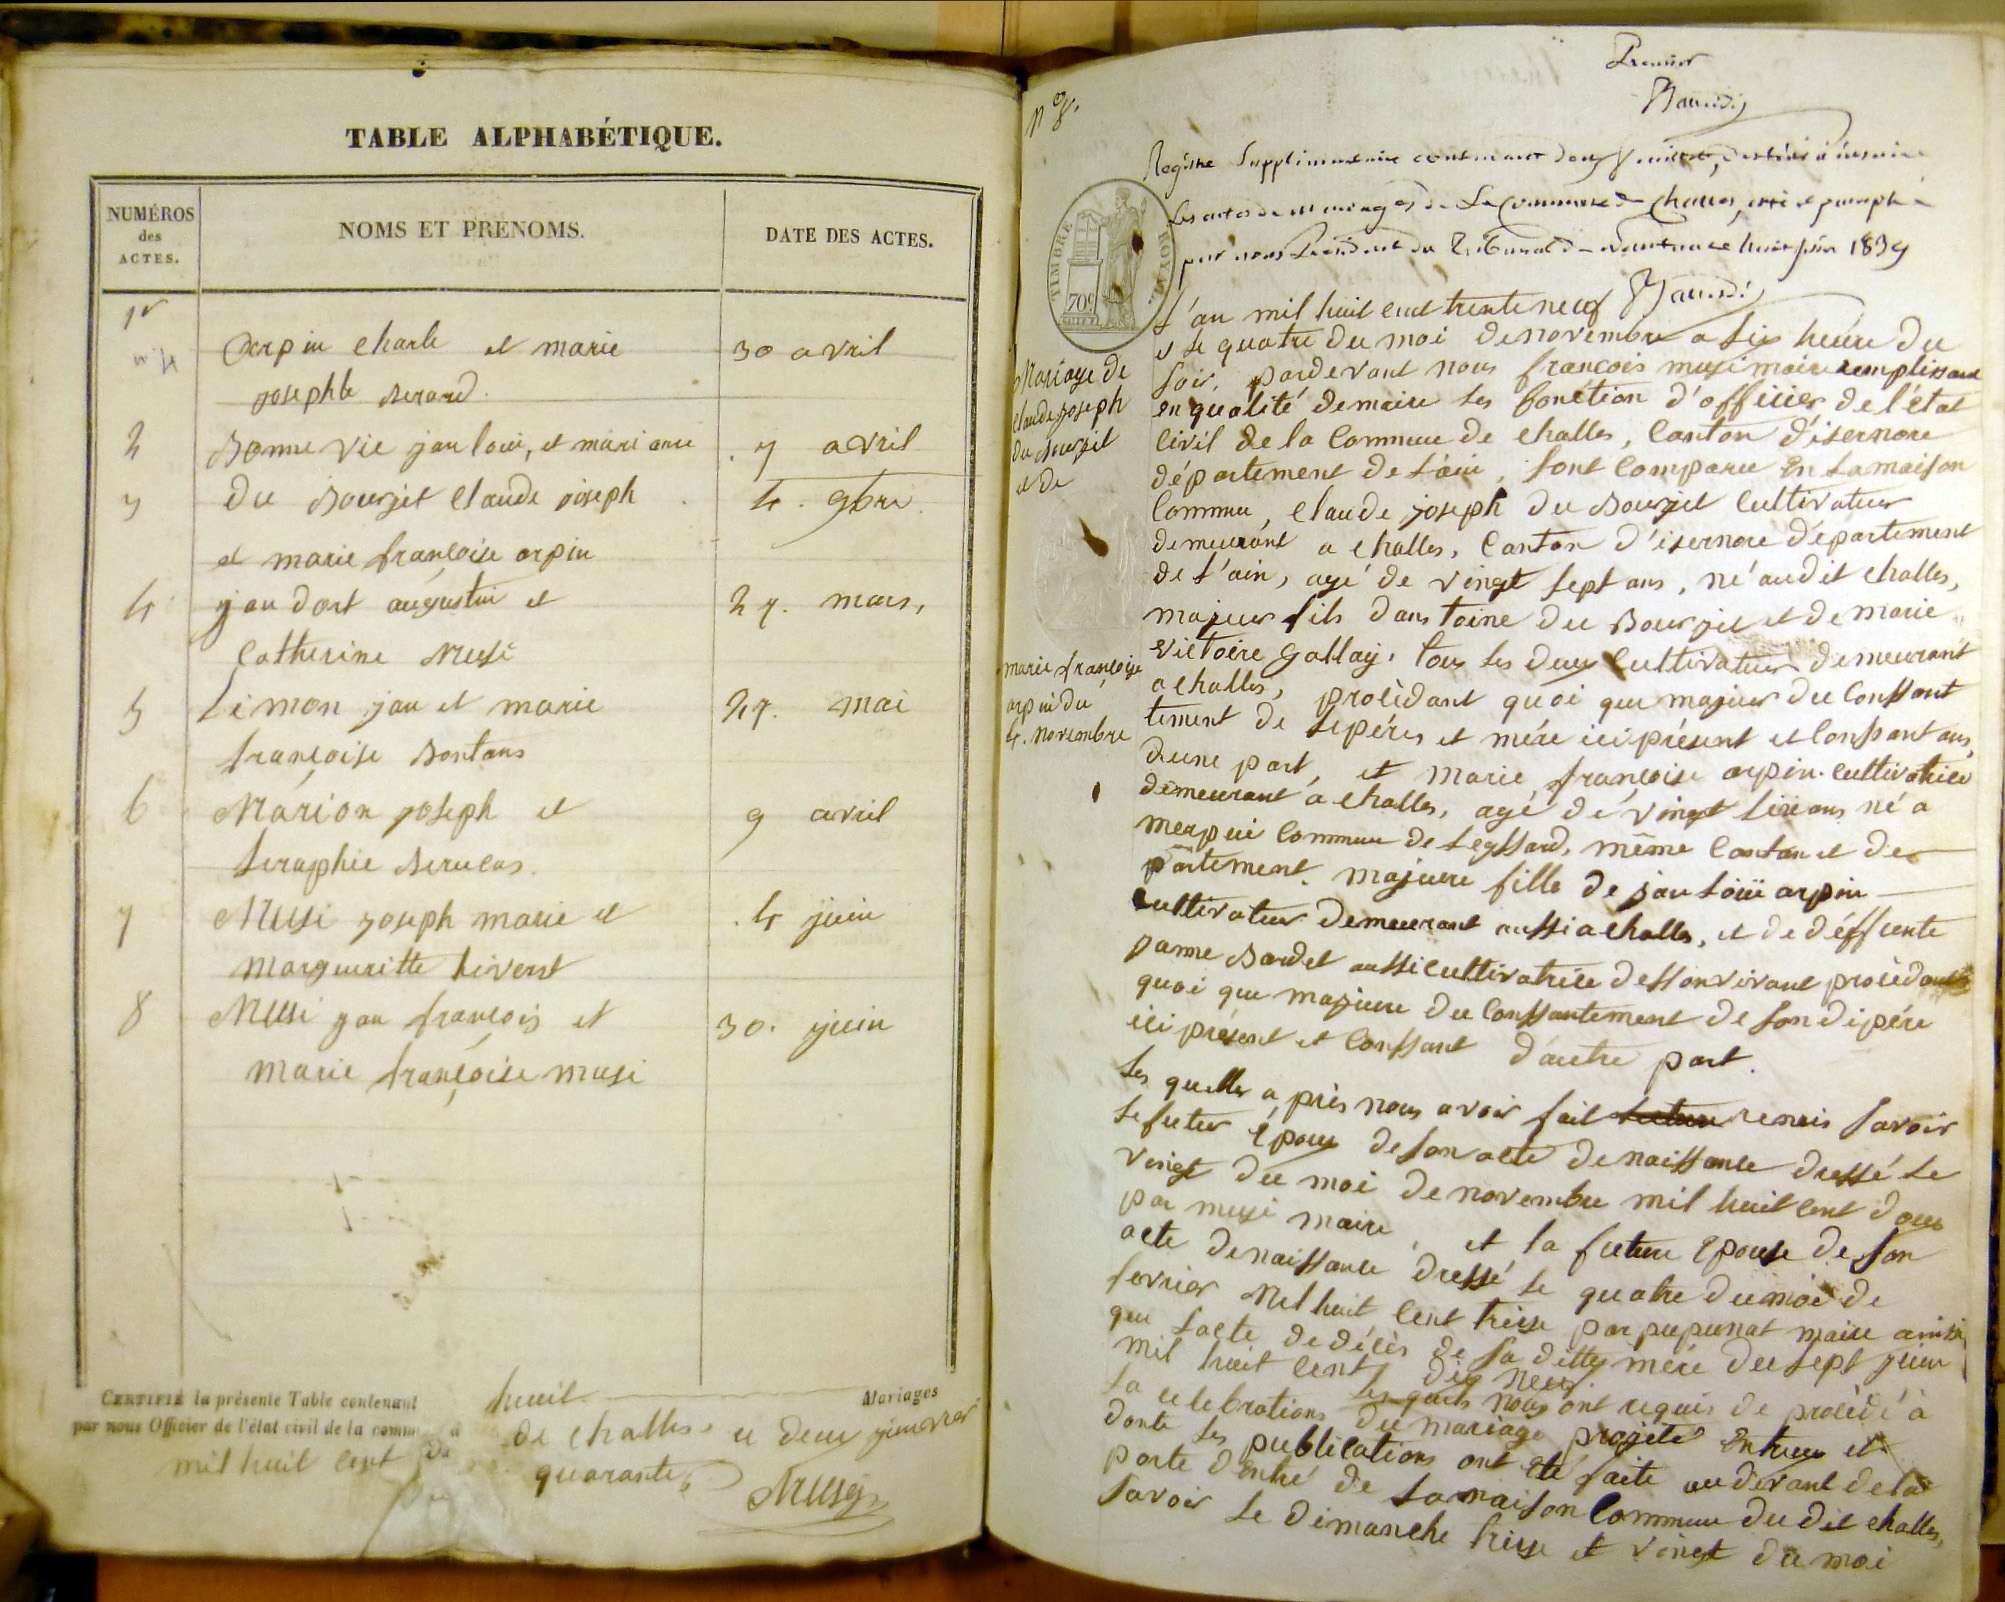 TABLE ALPHABÉTIQUE.
NUMÉROS
des
ACTES.
NOMS ET PRENOMS.
DATE DES ACTES.
1er
arpin charle et marie
30 avril
josephte Berard
2
Bonne vie jan loui, et mari anne
7 avril
3
du Bourget Claude joseph
4. 9bre.
et marie françoise arpin
4
jan dort augustin et
27. mars,
Catherine Musi
5
Simon jan et marie
27. mai
françoise Bontans
6
Marion joseph et
9 avril
Seraphie
7
Musi joseph marie et
4 juin
Margueritte
8
Musi jan françois et
30. juin
marie françoise musi
CERTIFIÉ la présente Table contenant huit Mariages
par nous Officier de l'état civil de la comm de challes. ce deux janvier
mil huit cent quarante,
Musy
Premier
N° 8.
Registre Supplémentaire contenant deux feuilles, destiné à inscrire
Les actes de mariages de La Commune de Challes, coté et paraphé
par nous Président du Tribunal de Nantua ce huit juin 1839
TIMBRE ROYAL
70c.
L'an mil huit cent trente neuf
et le quatre du moi de novembre a six heure du
soir, pardevant nous françois musi maire remplissant
en qualité de maire les fonction d'officier de l'état
Civil de la Commune de challes, Canton d'isernore
département de l'ain, sont Comparu En la maison
Commu, Claude joseph du Bourget Cultivateur
demeurant a challes, Canton d'isernore département
de l'ain, agé de vingt sept ans, né audit challes,
majeur fils dans toine du Bourget et de marie
victoire gallay, tous les deux Cultivateur demeurant
a challes, procèdant quoi que majeur du Conssant
tement de sepéres et mére ici présent et Conssant ans,
dune part, et marie françoise arpin Cultivatrice
demeurant a challes, agé de vingt ans né a
Commune de Leyssard, même Canton et de
partement. majeure fille de jan Loui arpin
Cultivateur demeurant aussi a challes, et de déffunte
janne Bordet aussi Cultivatrice dessonvivant procèdant
quoi que majeure du Conssantement de son di pére
ici présent et Conssant d'autre part.
Les quelles a près nous avoir fait remis savoir
le futur époux de son acte de naissance dressé le
vingt du moi de novembre mil huit cent douze
par musi maire, et la future épouse de son
acte de naissance dressé le quatre du moi de
fevrier Mil huit cent treize par pupunat maire ainsi
que lacte de décès de sa ditte mére du sept juin
mil huit cent dix neuf.
les quels nous ont requis de procèdé à
la celebrations du mariage projeté Entreux et
donte les publications ont été faite au devant de la
porte d'entré de la maison Commune du dit challes,
savoir le dimanche treize et vingt du moi
Mariage de
claude joseph
du Bourget
et de
marie françoise
arpin du
4. novembre